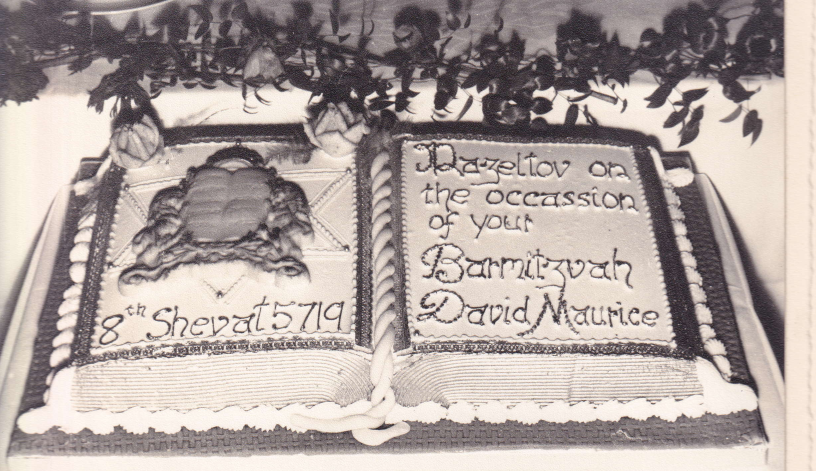 8th Shevat 5719
Mazeltov on
the occassion
of your
Barmitzvah
David Maurice